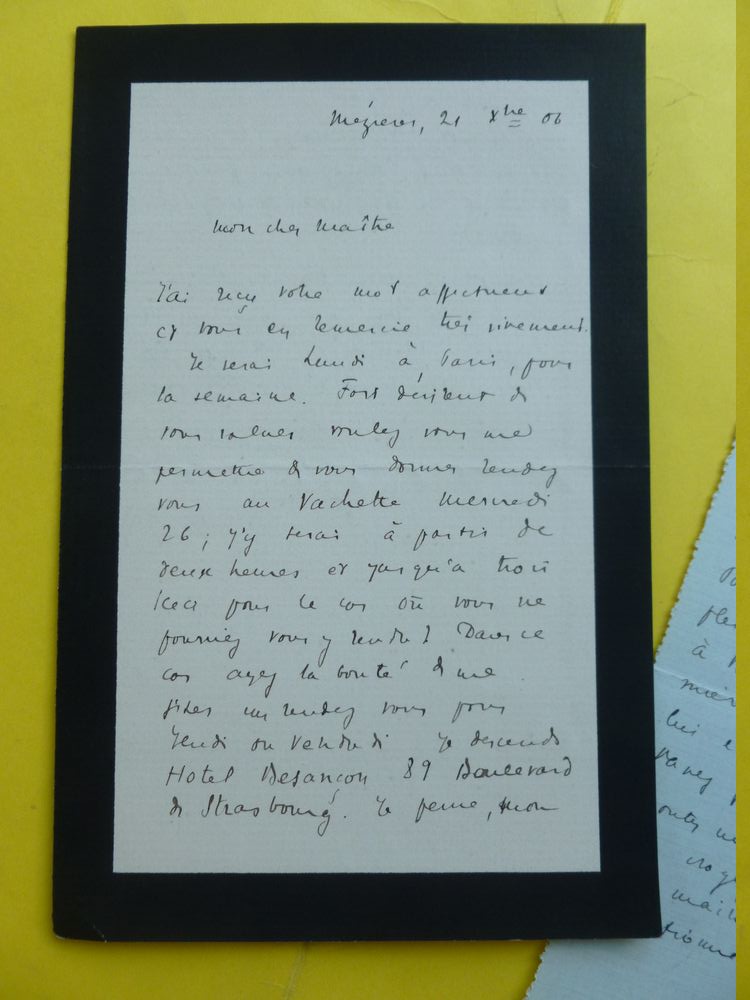 Mézières, 21 Xbre 06
mon cher Maître
J'ai reçu votre mot affectueux
et vous en remercie très vivement.
Je serai Lundi à Paris, pour
la semaine. Fort désireux de
vous saluer voulez vous me
permettre de vous donner rendez
vous au Vachette mercredi
26 ; j'y serai à partir de
deux heures et jusqu'à trois
pour le cas où vous ne
pourriez vous y rendre ? Dans ce
cas ayez la bonté de me
fixer un rendez vous pour
Jeudi ou Vendredi Je descends
Hotel Besançon 89 Boulevard
de Strasbourg. Je pense, mon
à
lui